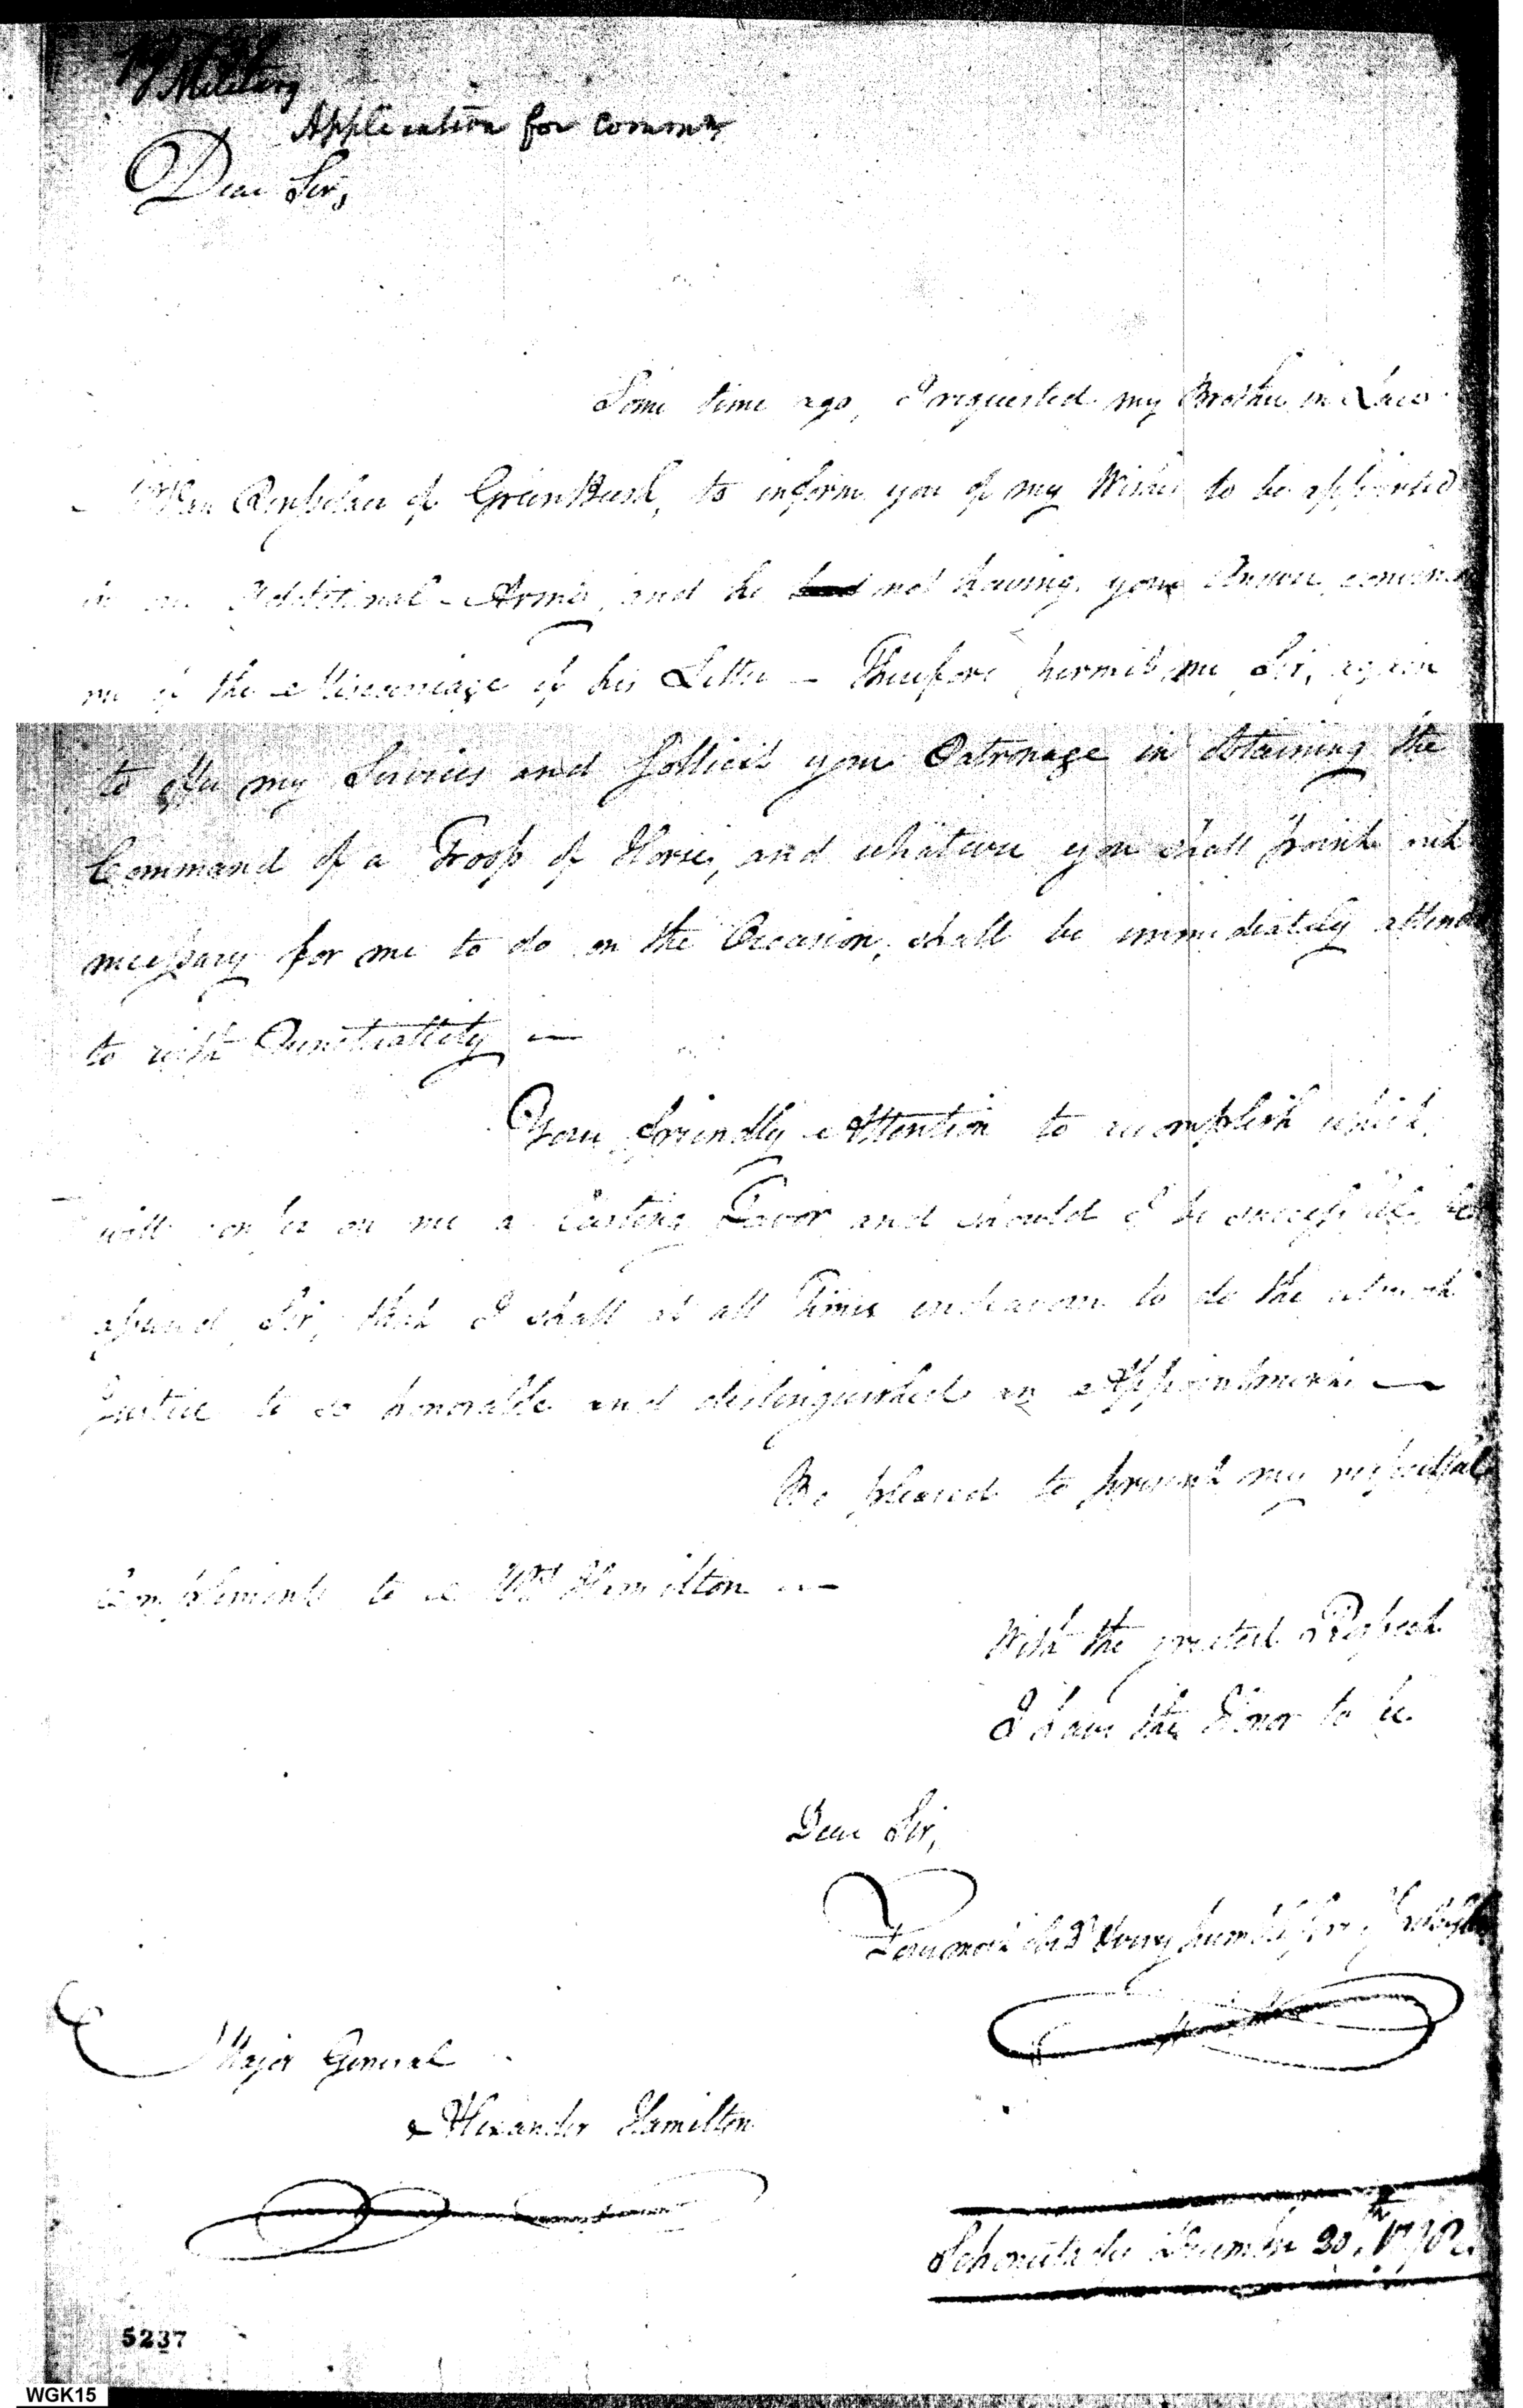 Military
Application for Comm
Dear Sir,
Some time ago, I requested my Brother in Law
Van Renselaer of GreenBush, to inform you of my Wishes to be appointed
in our Additional Army, and he not having your Answer, convinces
me of the Miscarriage of his Letter — Therefore permit me Sir, again
to offer my Services and Sollicit your Patronage in obtaining the
Command of a Troop of Horse, and whatever you shall point out
necessary for me to do on the Occasion, shall be immediately attend
to with Punctuallity —
Your friendly Attention to accomplish which,
will confer on me a lasting Favor and should I be successful, be
assured, Sir, that I shall at all Times endeavour to do the utmost
Justice to so honorable and distinguished an Appointment —
Be pleased to present my respectful
Compliments to Mrs Hamilton —
With the greatest Respect
I have the Honor to be
Dear Sir,
Your most Obd very humble
Major General
Alexander Hamilton
Schenectady December 20th
5237
WGK15